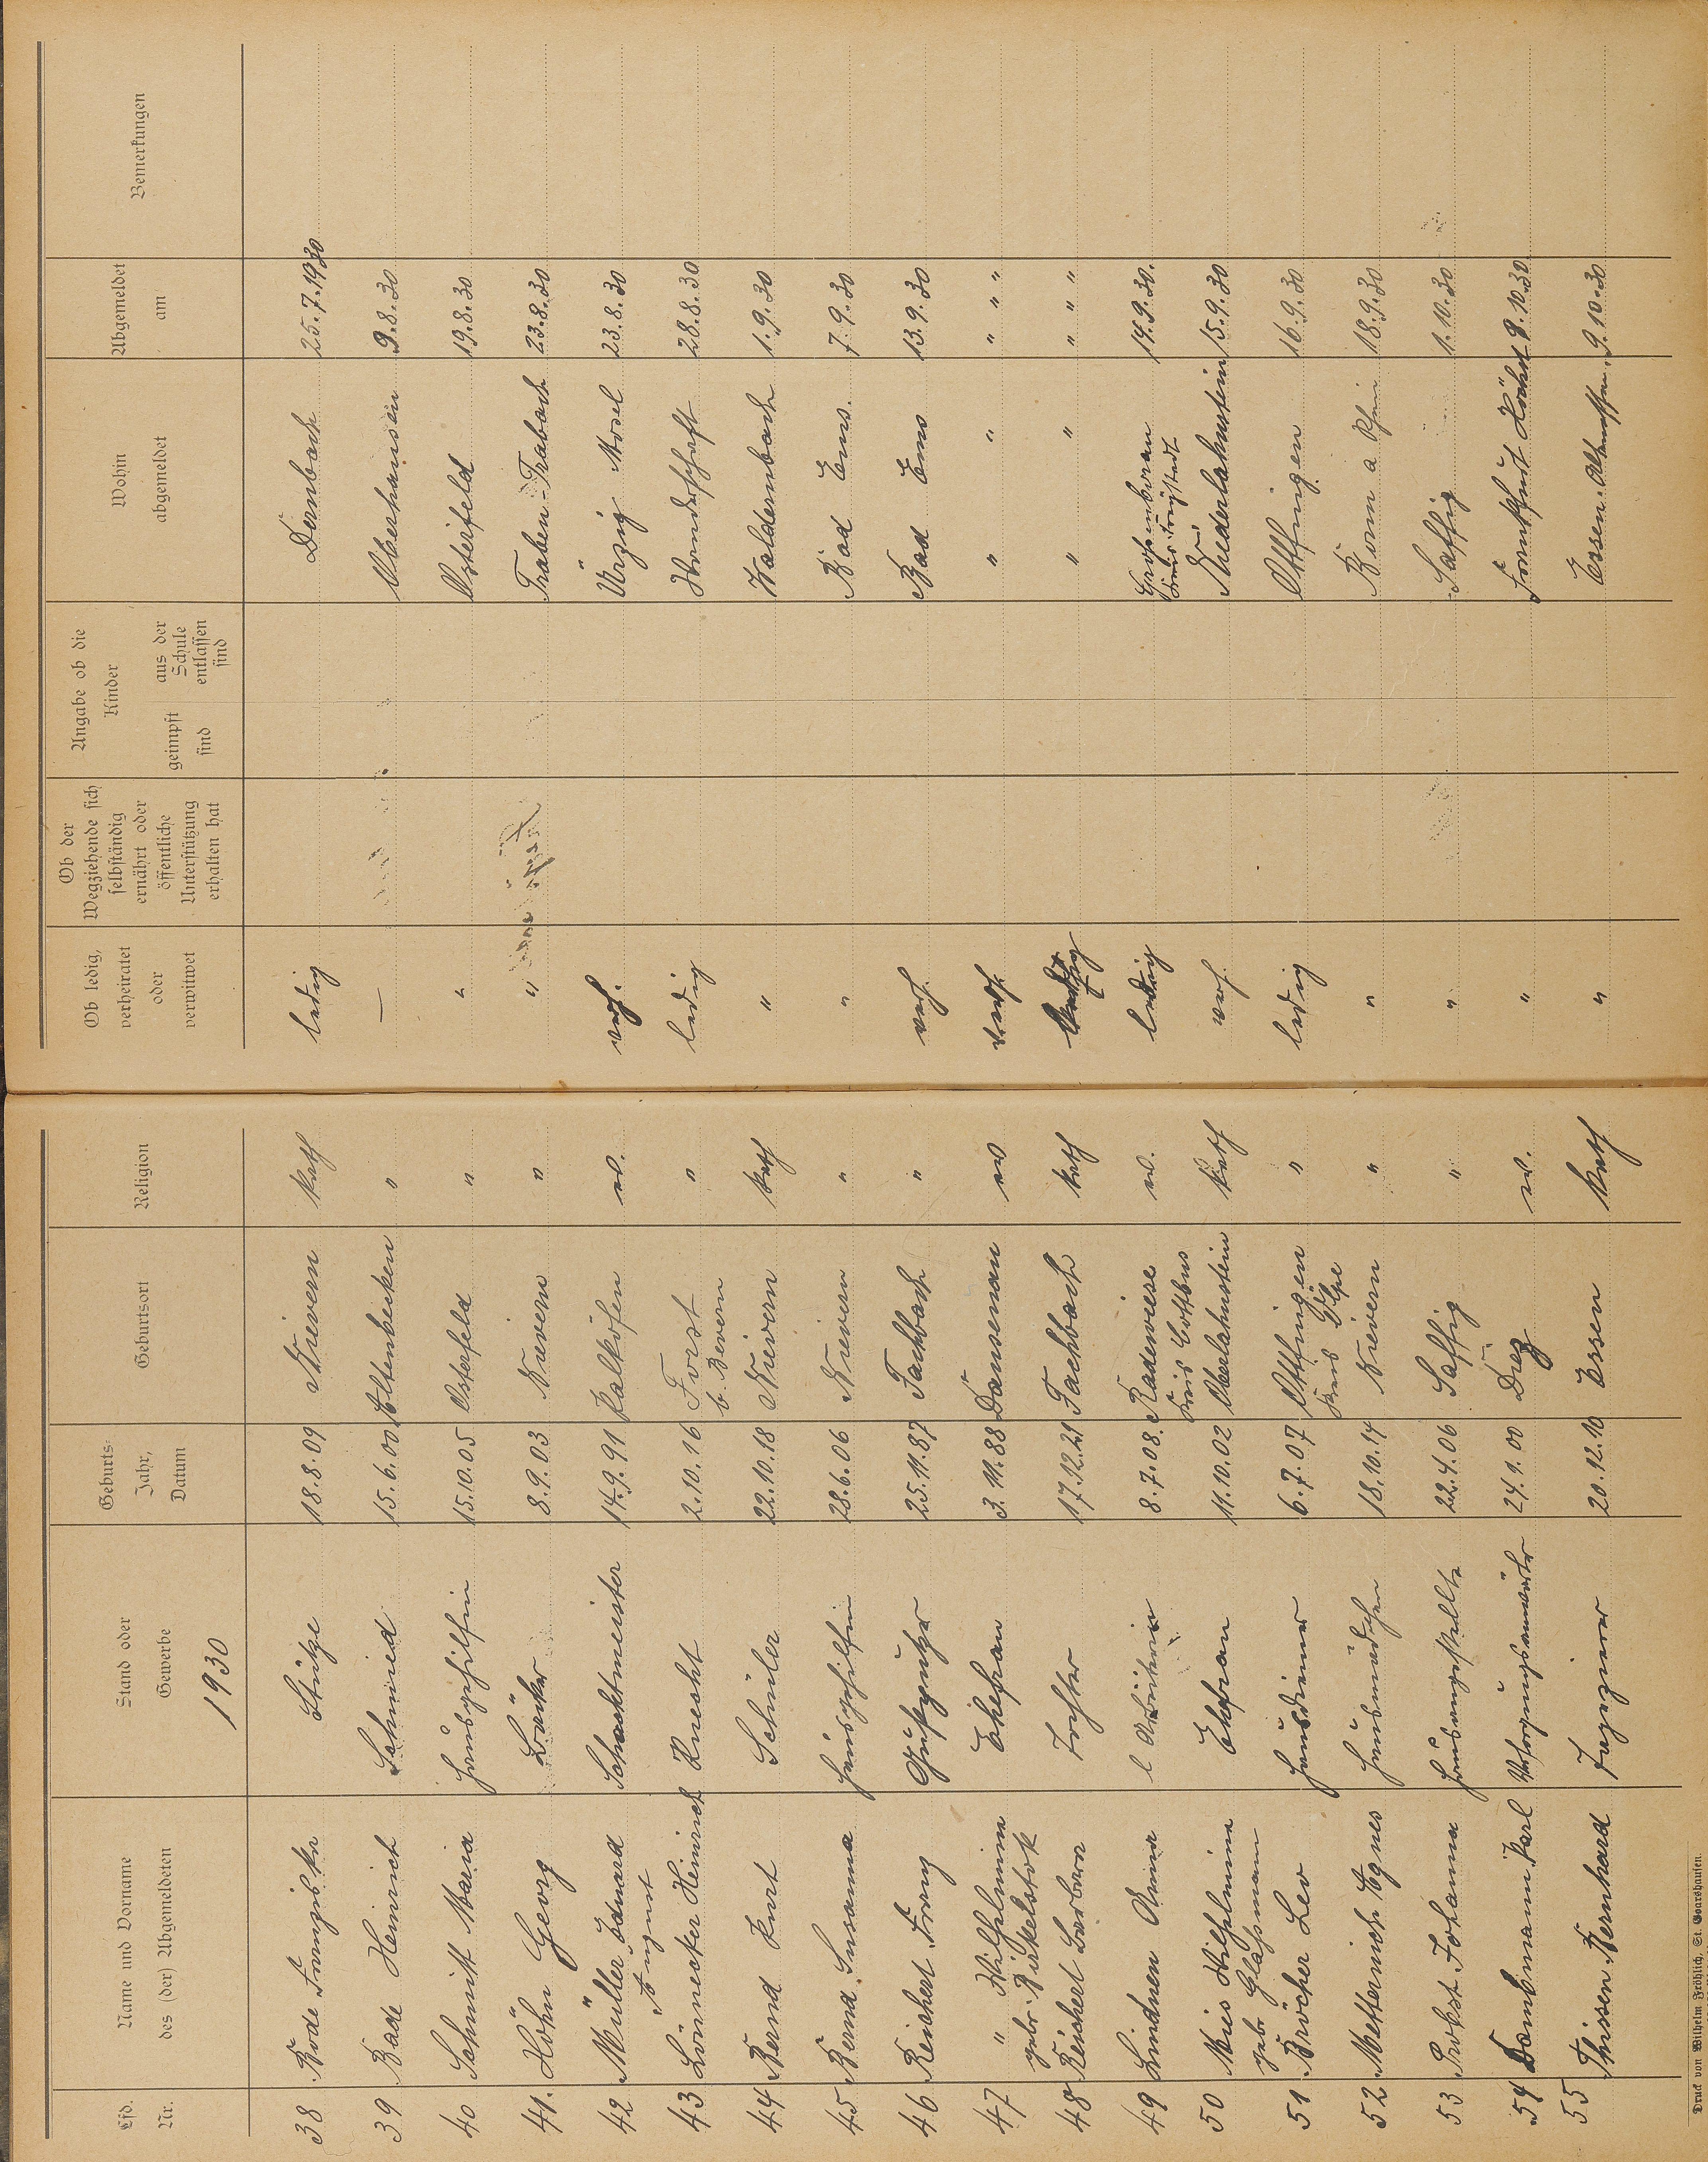 Lfd. Nr. Name und Vorname des (der) Abgemeldeten Stand oder Gewerbe Geburts- Jahr, Datum Geburtsort Religion Ob ledig, verheiratet oder verwitwet Ob der Wegziehende sich selbständig ernährt oder öffentliche Unterstützung erhalten hat Angabe ob die Kinder geimpft sind aus der Schule entlassen sind Wohin abgemeldet Abgemeldet am Bemerkungen
1930
38 Bode Franziska Stütze 18.8.09 Nievern kath ledig Dernbach 25.7.1930
39 Bade Heinrich Schmied 15.6.00 Altenbecken " — Oberhausen 9.8.30
40 Schmitt Maria Hausgehilfin 15.10.05 Osterfeld " " Osterfeld 19.8.30
41. Höhn Georg Bäcker 8.9.03 Nievern " " Traben-Trabach 23.8.30
42 Müller Eduard August Schachtmeister 14.9.91 Kalkofen ev. verh. Ürzig Mosel 23.8.30
43 Lönnecker Heinrich Knecht 2.10.16 Forst b. Bevern " ledig 28.8.30
44 Bernd Kurt Schüler 22.10.18 Nievern kath " Waldernbach 1.9.30
45 Bernd Susanna Hausgehilfin 28.6.06 Nievern " " Bad Ems. 7.9.30
46 Reichert Franz Gußputzer 25.11.87 Fachbach " verh. Bad Ems 13.9.30
47 " Wilhelmine geb. Birkelstok Ehefrau 3.11.88 Dausenau ev verh. " " " " "
48 Reichert Barbara Tochter 17.12.21 Fachbach kath ledig " " " " "
49 Lindner Anna Arbeiterin 8.7.08. Radewiese Kreis Cottbus ev. ledig 14.9.30.
50 Mies Wilhelmine geb Glasmann Ehefrau 11.10.02 Oberlahnstein kath verh. Niederlahnstein 15.9.30
51 Bröcher Leo Hausdiener 6.7.07 Attfingen Kreis Olpe " ledig Attfingen 16.9.30
52 Metternich Agnes Hausmädchen 18.10.14 Nievern " " Bonn a Rhein 18.9.30
53 Probst Johanna Hausangestellte 22.4.06 Saffig " " Saffig 1.10.30
54 Dambmann Karl Versorgungsanwärter 24.1.00 Diez ev. " Frankfurt Höchst 9.10.30
55 Thissen Bernhard 20.12.10 Essen kath " Essen-Altenessen 9.10.30
Druck von Wilhelm Fröhlich, St. Goarshausen.